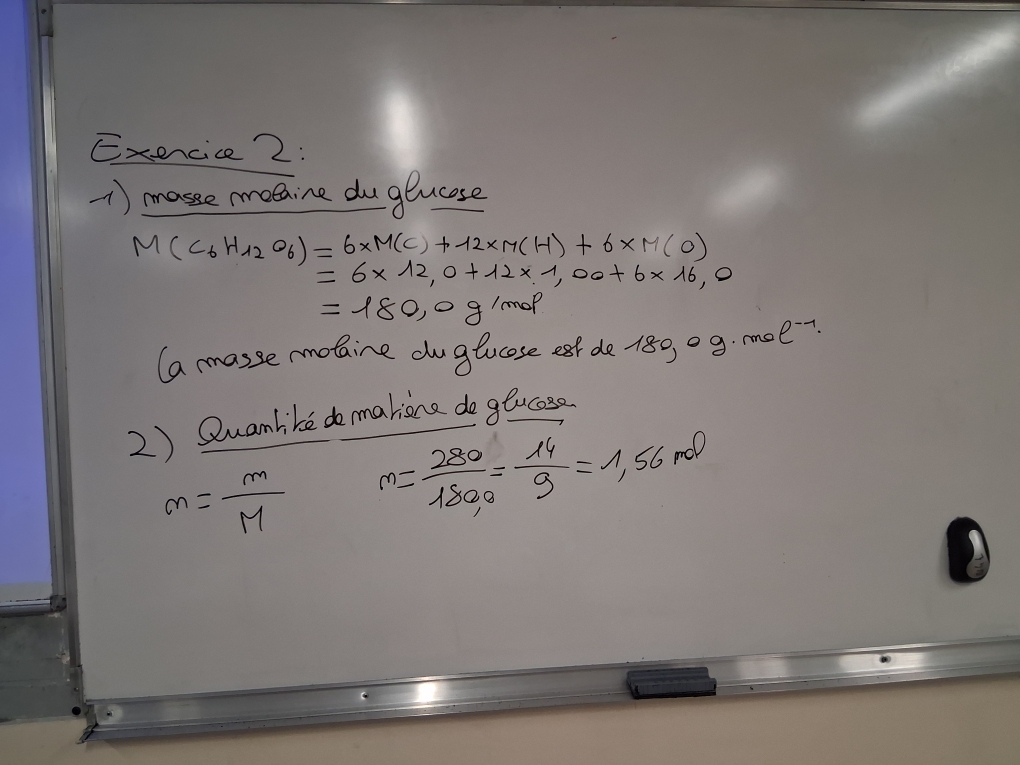 Exercice 2:
1) masse molaire du glucose
M(C6H12O6) = 6×M(C) + 12×M(H) + 6×M(O)
= 6× 12,0 + 12× 1,00 + 6× 16,0
= 180,0 g/mol
La masse molaire du glucose est de 180,0 g.mol⁻¹.
2) Quantité de matière de glucose
n = m/M n = 280/180,0 = 14/9 = 1,56 mol